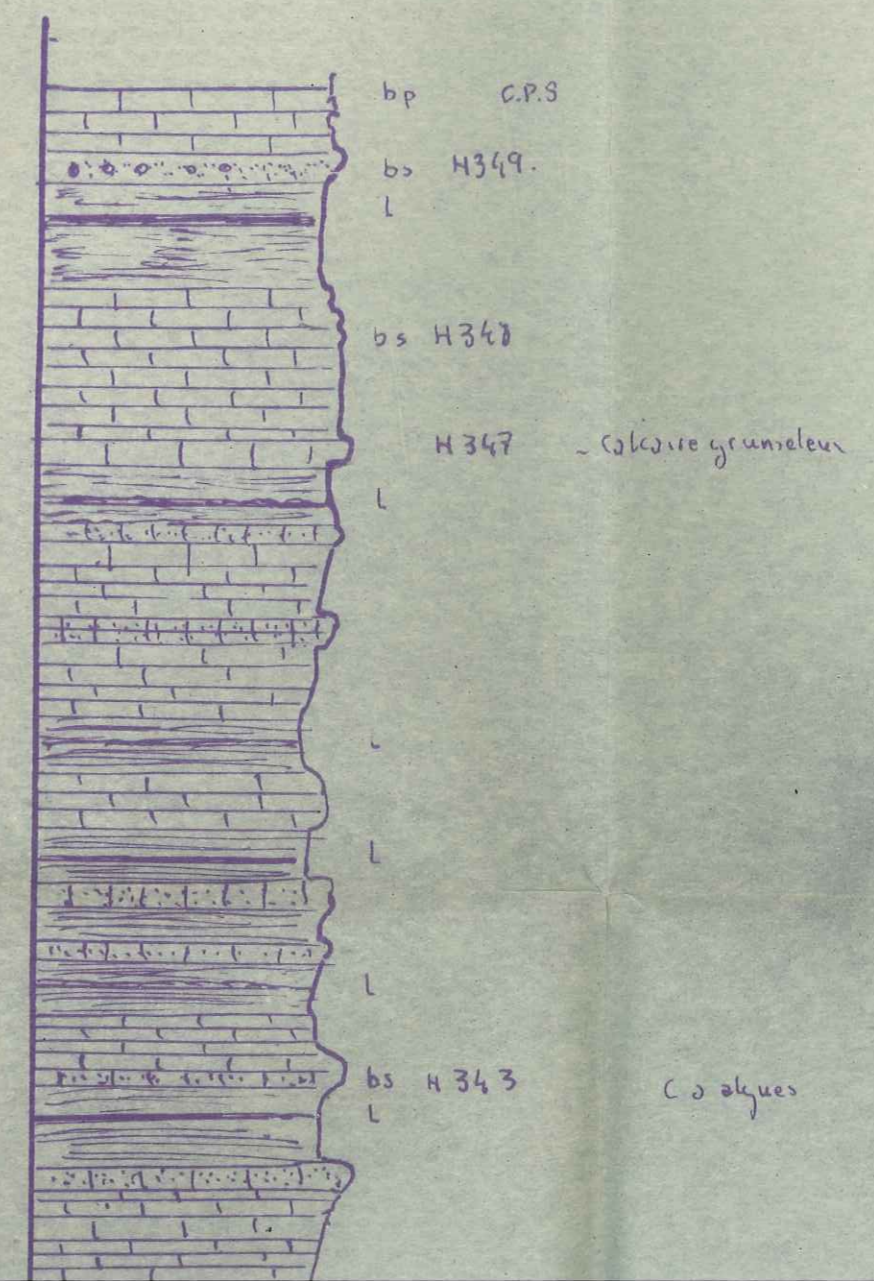 bp C.P.S
bs H349.
l
bs H348
H347 - Calcaire grumeleux
L
L
L
L
bs H343 C à algues
L